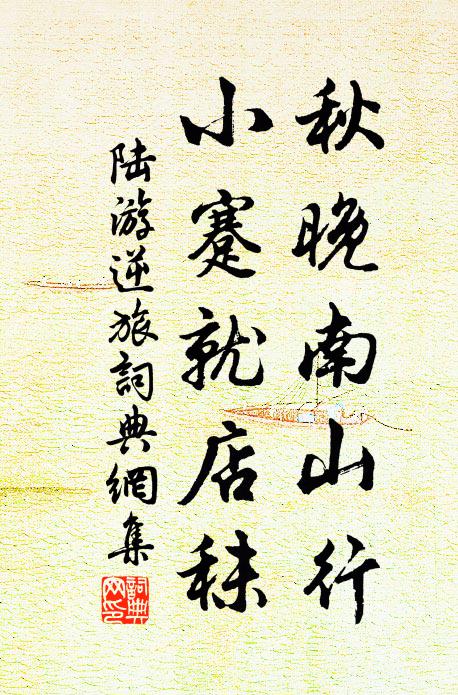 秋晚南山行
小蹇就店秣
陆游逆旅詞典網集
詞典网印